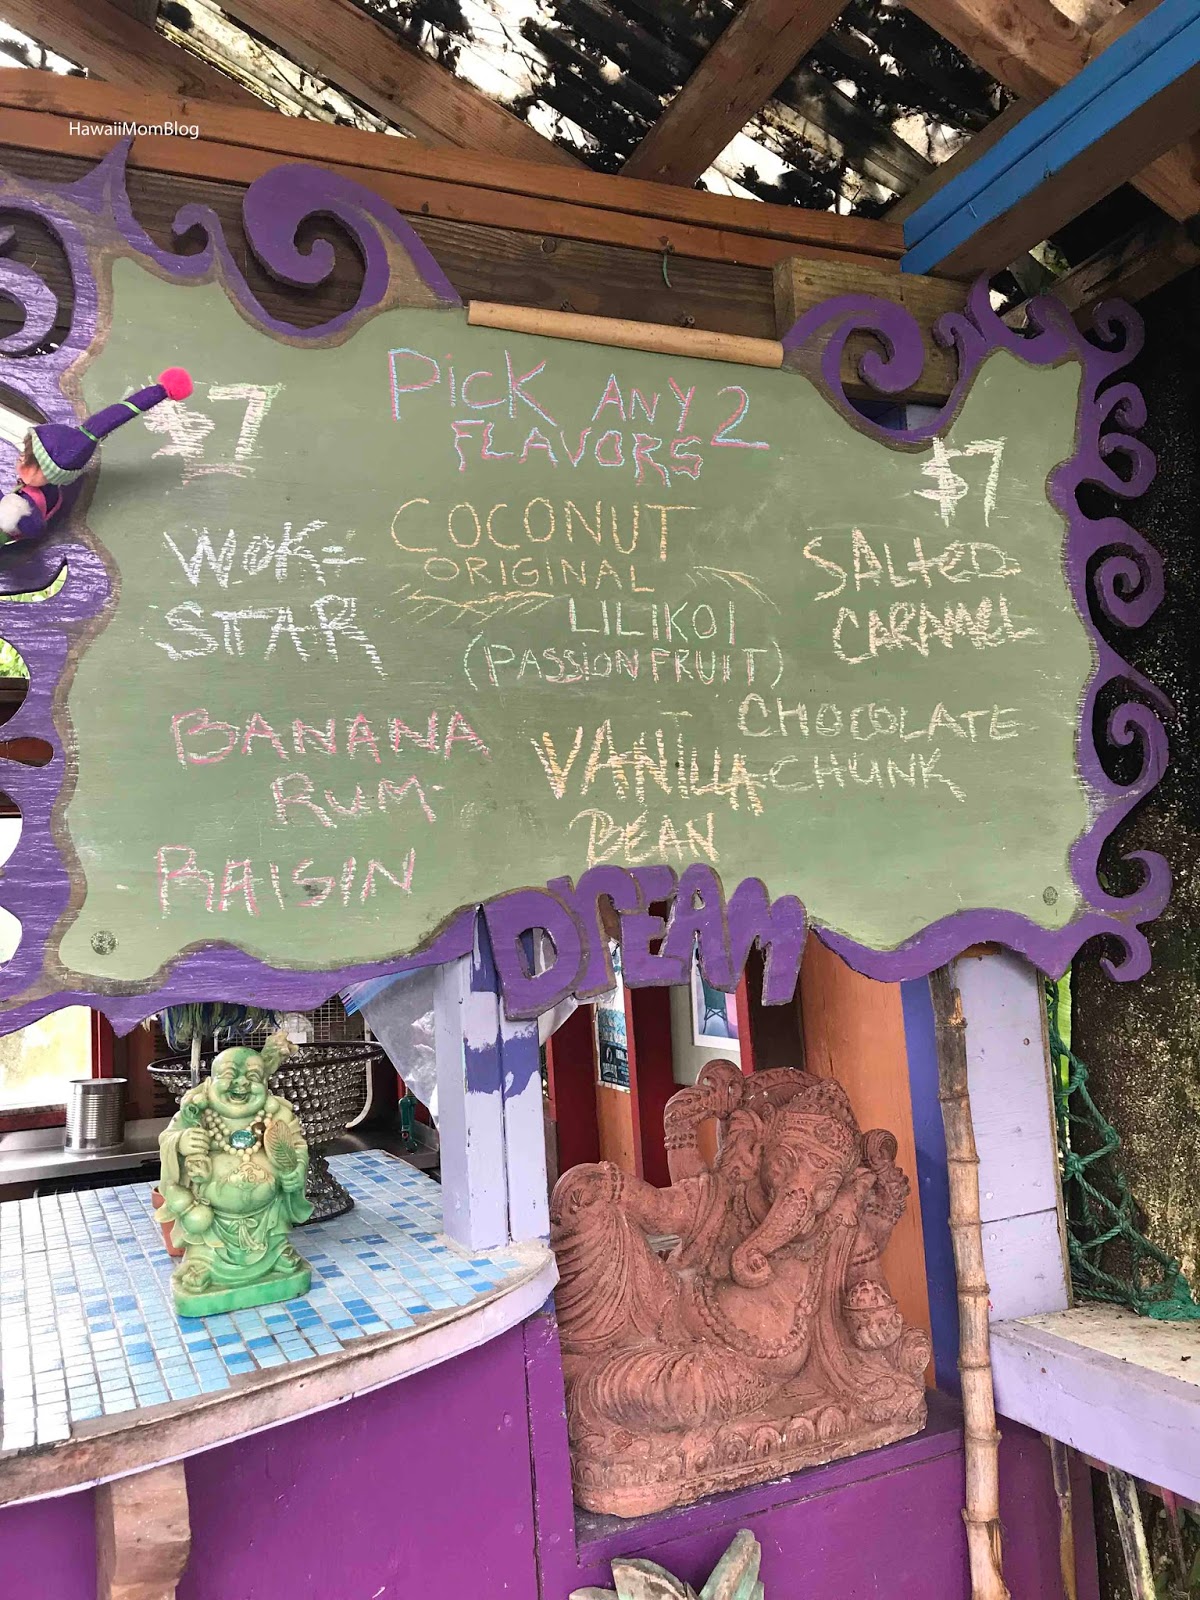 HawaiiMomBlog
$7
PiCK ANY 2
FLAVORS
$7
WOK=
STAR
COCONUT
ORIGINAL
LILIKOI
(PASSiON FRUIT)
SALteD
CARAMEL
BANANA
RUM-
RAISIN
VANiLLA
BEAN
CHOCOLATE
CHUNK
DrEAM